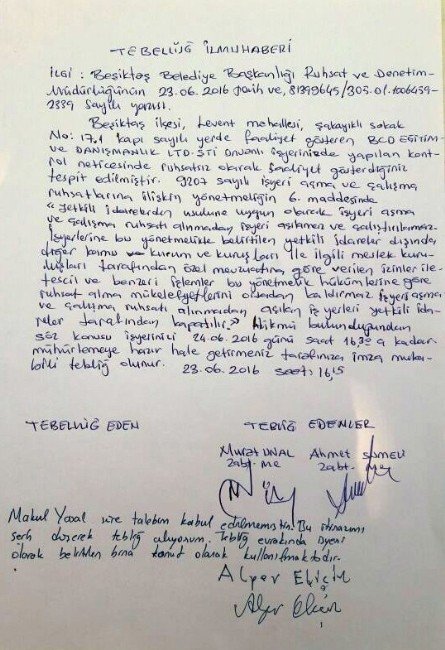 TEBELLÜĞ İLMUHABERİ
İLGİ : Beşiktaş Belediye Başkanlığı Ruhsat ve Denetim
Müdürlüğünün 23.06.2016 tarih ve, 81399645/305.01.1006459-
2339 Sayılı yazısı.
Beşiktaş ilçesi, Levent mahallesi, Şakayıklı sokak
No: 17.1 kapı sayılı yerde faaliyet gösteren BCD EĞİTİM
ve DANIŞMANLIK LTD.ŞTİ ünvanlı işyerinizde yapılan kont
rol neticesinde ruhsatsız olarak faaliyet gösterdiğiniz
tespit edilmiştir. 9207 sayılı işyeri açma ve çalışma
ruhsatlarına ilişkin yönetmeliğin 6. maddesinde
"Yetkili idarelerden usulune uygun olarak işyeri açma
ve çalışma ruhsatı alınmadan işyeri açılamaz ve çalıştırılamaz.
İşyerlerine bu yönetmelikte belirtilen yetkili idareler dışında
diğer kamu kurum ve kuruluşları ile ilgili meslek kuru
luşları tarafından özel mevzuatına göre verilen izinler ile
tescil ve benzeri işlemler bu yönetmelik hükümlerine göre
ruhsat alma mükellefiyetlerini ortadan kaldırmaz işyeri açma
ve çalışma ruhsatı alınmadan açılan iş yerleri yetkili ida
reler tarafından kapatılır" Hükmü bulunduğundan
söz konusu işyerinizi 24.06.2016 günü saat 16:30 a kadar
mühürlemeye hazır hale getirmeniz tarafınıza imza muka-
bili tebliğ olunur. 23.06.2016 saat: 16,15
TEBELLÜĞ EDEN
TEBLİĞ EDENLER
Murat ÜNAL Ahmet
Zabt. me. Zabt.
Makul Yasal süre talebim kabul edilmemiştir. Bu itirazımı
şerh düşerek tebliğ alıyorum. Tebliğ evrakında işyeri
olarak belirtilen bina konut olarak kullanılmaktadır.
Alper